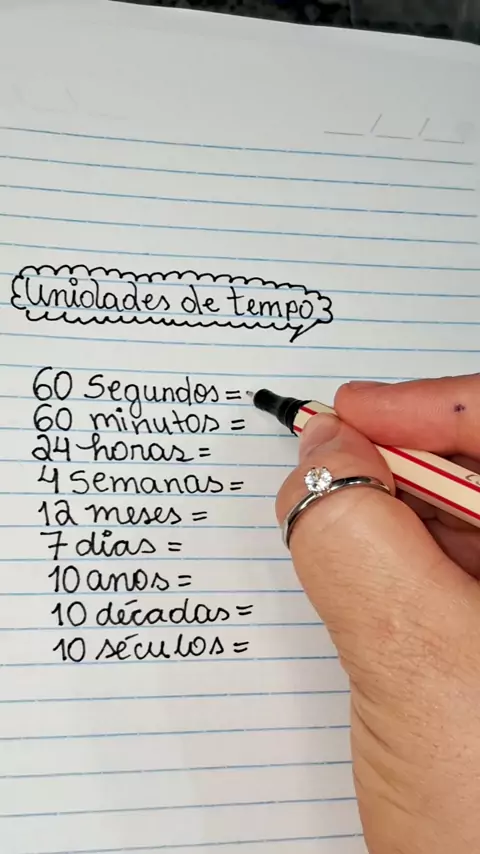 __/__/__
Unidades de tempo
60 segundos =
60 minutos =
24 horas =
4 semanas =
12 meses =
7 dias =
10 anos =
10 décadas =
10 séculos =